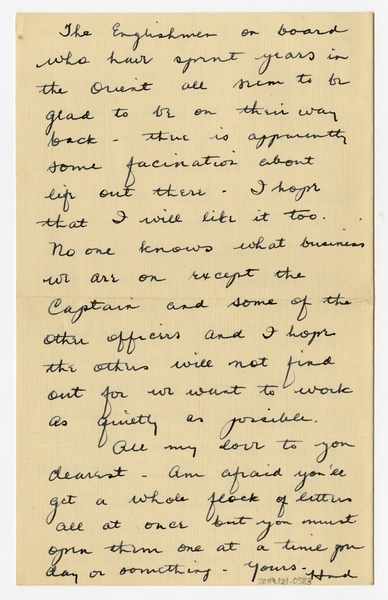 The Englishmen on board
who have spent years in
the Orient all seem to be
glad to be on their way
back - there is apparently
some facination about
life out there - I hope
that I will like it too.
No one knows what business
we are on except the
Captain and some of the
other officers and I hope
the others will not find
out for we want to work
as quietly as possible.
All my love to you
dearest - Am afraid you'll
get a whole flock of letters
all at once but you must
open them one at a time per
day or something - Yours -